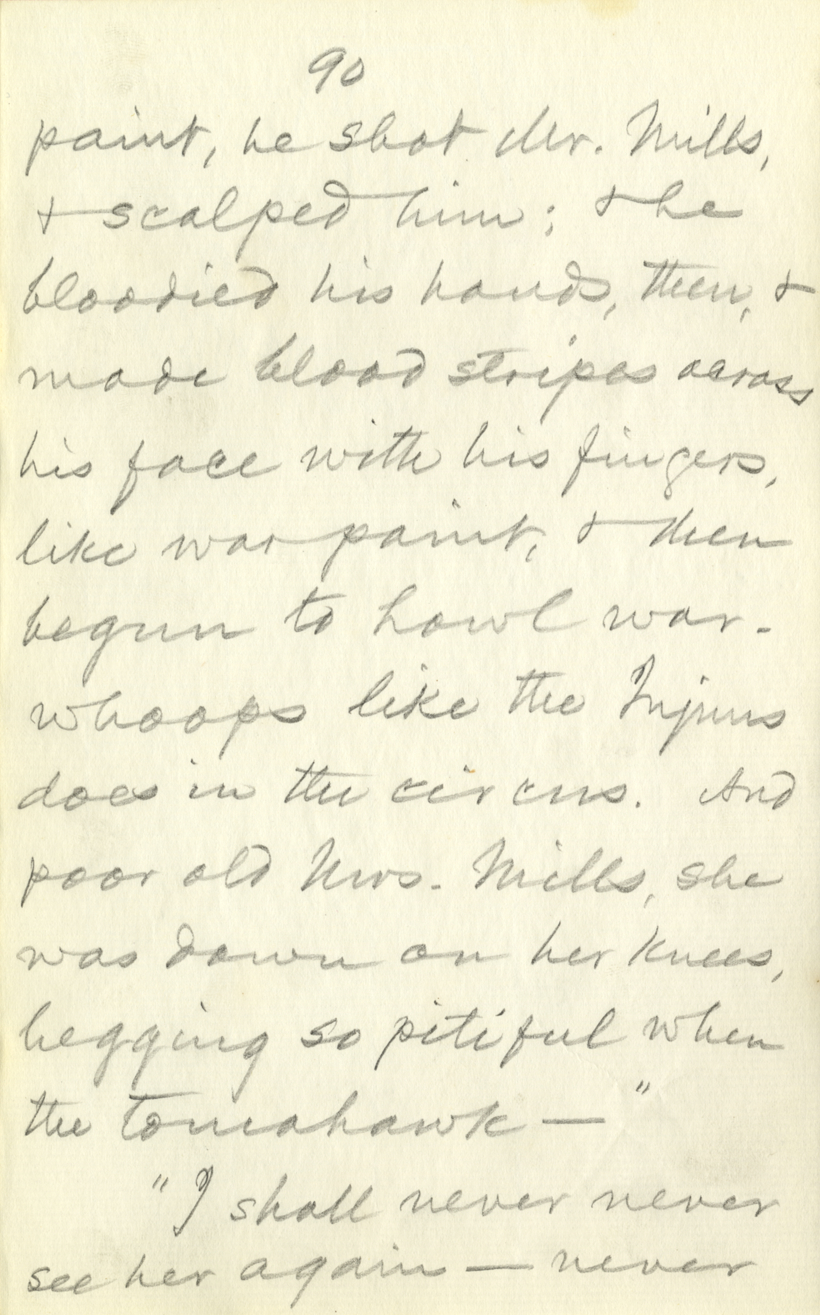 90
paint, he shot Mr. Mills,
& scalped him; & he
bloodied his hands, then, &
made blood stripes across
his face with his fingers,
like war paint, & then
begun to howl war-
whoops like the Injuns
does in the circus. And
poor old Mrs. Mills, she
was down on her knees,
begging so pitiful when
the tomahawk — "
"I shall never never
see her again — never